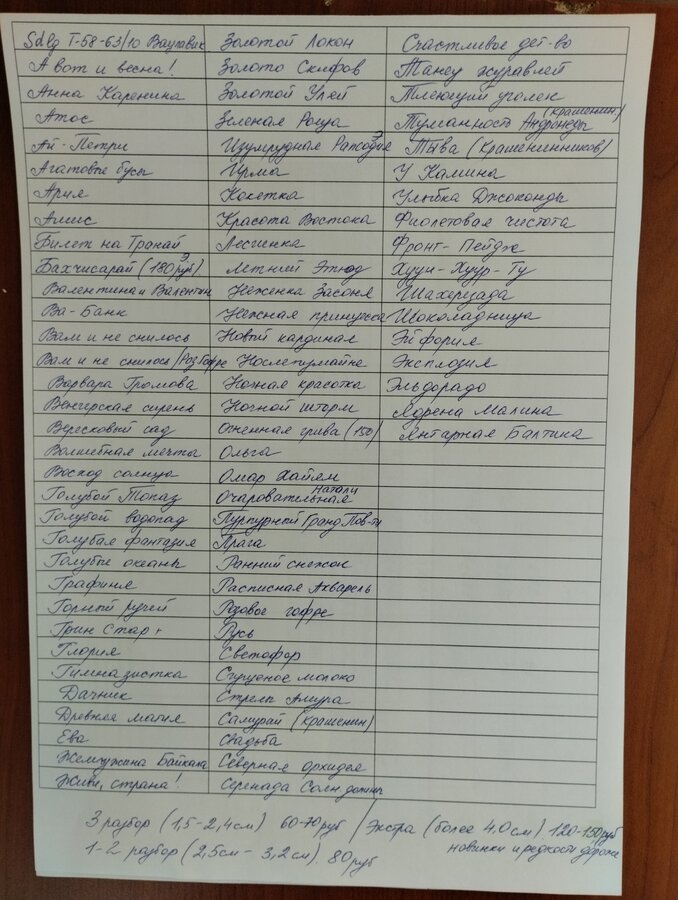 Sdlg T-58-63/10 Ваулавик
А вот и весна!
Анна Каренина
Атос
Ай-Петри
Агатовые бусы
Ария
Амис
Билет на Транай
Бахчисарай (180руб) Э
Валентина и Валентин
Ва-Банк
Вам и не снилось
Вам и не снилось/Роз Гофре
Варвара Громова
Венгерская сирень
Вересковый сад
Волшебная мечты
Восход солнца
Голубой Топаз
Голубой водопад
Голубая фантазия
Голубые океаны
Графиня
Горный ручей
Грин Стар +
Глория
Гимназистка
Дачник
Древняя магия
Ева
Жемчужина Байкала
Живи, страна!
Золотой Локон
Золото Скифов
Золотой Улей
Зеленая Роща
Изумрудная Рапсодия Э
Ирма
Кокетка
Красота Востока
Лесгинка
Летний Этюд
Неженка Засоня
Нежная принцесса
Новый кардинал
Нослепумайне
Ночная красотка
Ночной шторм
Огненная грива (150)
Ольга
Омар Хайям
Очаровательная Натали
Пурпурный Гранд Пов-ти
Прага
Ранний снежок
Расписная Акварель
Розовое гофре
Русь
Светофор
Сгущеное молоко
Стрелы Амура
Самурай (Крашенин)
Свадьба
Северная орхидея
Серенада Солн долины
Счастливое дет-во
Танец журавлей
Тлеющий уголек
Туманность Андромеды (Крашенин)
Тыва (Крашенинников)
У Камина
Улыбка Джоконды
Фиолетовая чистота
Фронт-Пейдж
Хууи-Хуур-Ту
Шахерезада
Шоколадница
Эйфория
Эксплозия
Эльдорадо
Ядрена Малина
Янтарная Балтика
3 разбор (1,5-2,4см) 60-70руб / Экстра (более 4.0см) 120-150руб
1-2 разбор (2,5см-3,2см) 80руб
новинки и редкости дороже